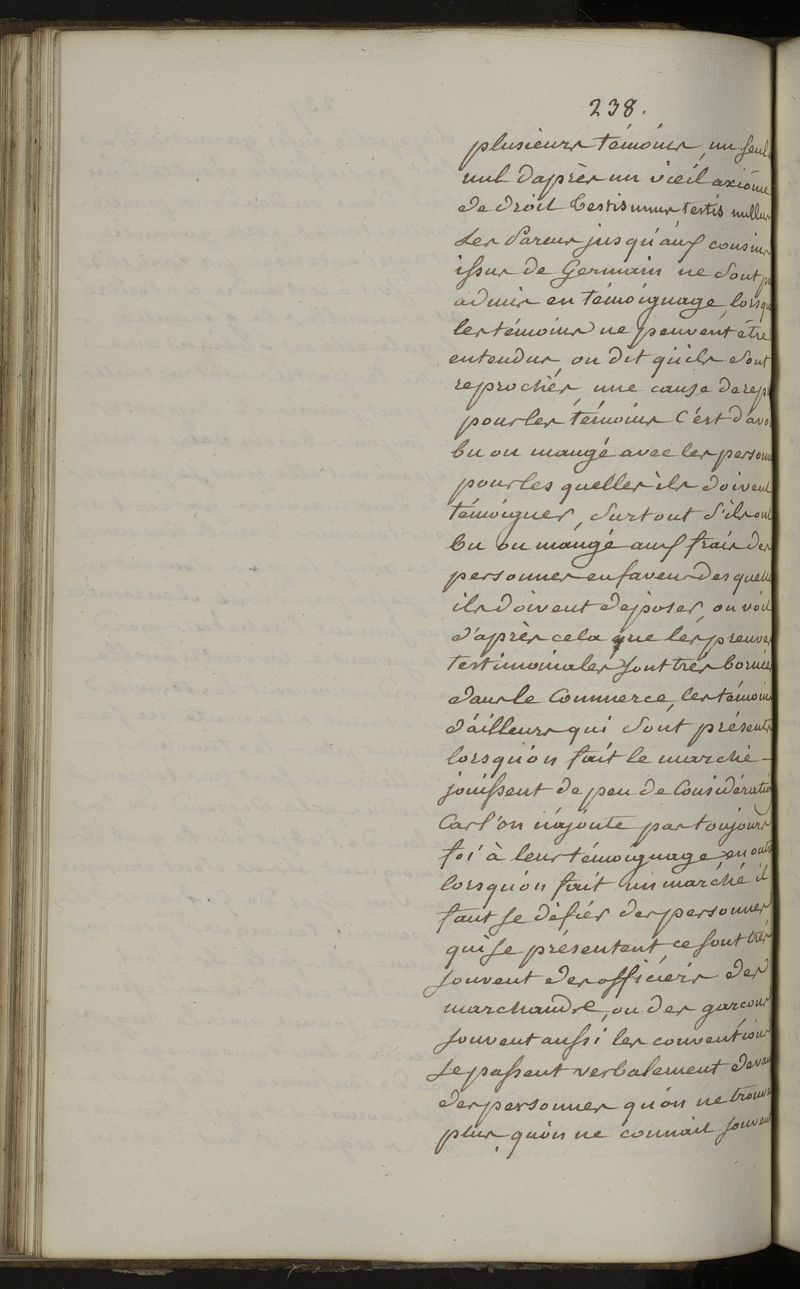 238.
plusieurs témoins, un seul
nul d'après un vieil axiôme
de droit testis unus testis nullus
Les Parens jusqu'aux cousins
issus de Germain ne sont p
admis en témoignage, lorsqu
les témoins ne peuvent être
entendus, on dit qu'ils sont
reprochés, une cause de repr
pour les témoins C'est d'avo
bu ou mangé avec les personn
pour les quelles ils doivent
témoigner, surtout s'ils ont
bu ou mangé aux frais des
personnes en faveur des quelle
ils doivent déposer, on voit
d'après cela que les preuves
testimoniales sont très bornées
dans le Commerce, les témoins
d'ailleurs qui sont présents
lorsqu'on fait le marché
jouissent de peu de Considératio
Car l'on n'ajoute pas toujours
foi à leur témoignage en outre
lorsqu'on fait un marché il
faut se défier des personnes
qui se présentent ce sont très
souvent des officiers des
marchands, ou des garçons
souvent aussi les conventions
se passent verbalement devan
des personnes qu'on ne trouve
plus, qu'on ne connait souvent